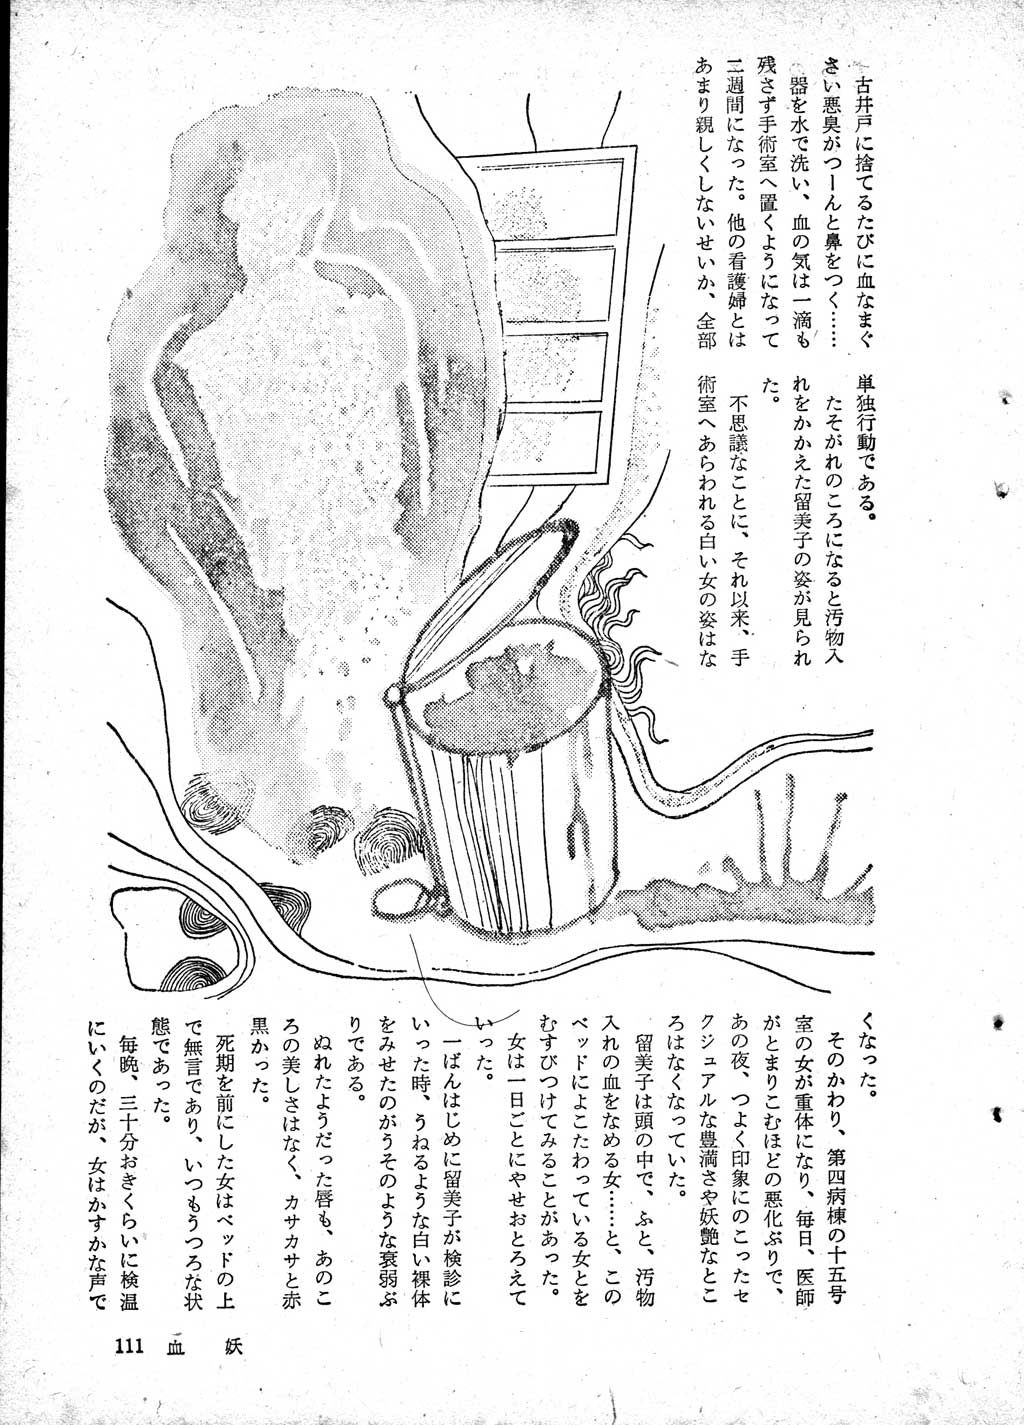 古井戸に捨てるたびに血なまぐ
さい悪臭がつーんと鼻をつく……
器を水で洗い、血の気は一滴も
残さず手術室へ置くようになって
二週間になった。他の看護婦とは
あまり親しくしないせいか、全部
単独行動である。
たそがれのころになると汚物入
れをかかえた留美子の姿が見られ
た。
不思議なことに、それ以来、手
術室へあらわれる白い女の姿はな
くなった。
そのかわり、第四病棟の十五号
室の女が重体になり、毎日、医師
がとまりこむほどの悪化ぶりで、
あの夜、つよく印象にのこったセ
クジュアルな豊満さや妖艶なとこ
ろはなくなっていた。
留美子は頭の中で、ふと、汚物
入れの血をなめる女……と、この
ベッドによこたわっている女とを
むすびつけてみることがあった。
女は一日ごとにやせおとろえて
いった。
一ばんはじめに留美子が検診に
いった時、うねるような白い裸体
をみせたのがうそのような衰弱ぶ
りである。
ぬれたようだった唇も、あのこ
ろの美しさはなく、カサカサと赤
黒かった。
死期を前にした女はベッドの上
で無言であり、いつもうつろな状
態であった。
毎晩、三十分おきくらいに検温
にいくのだが、女はかすかな声で
111 血妖